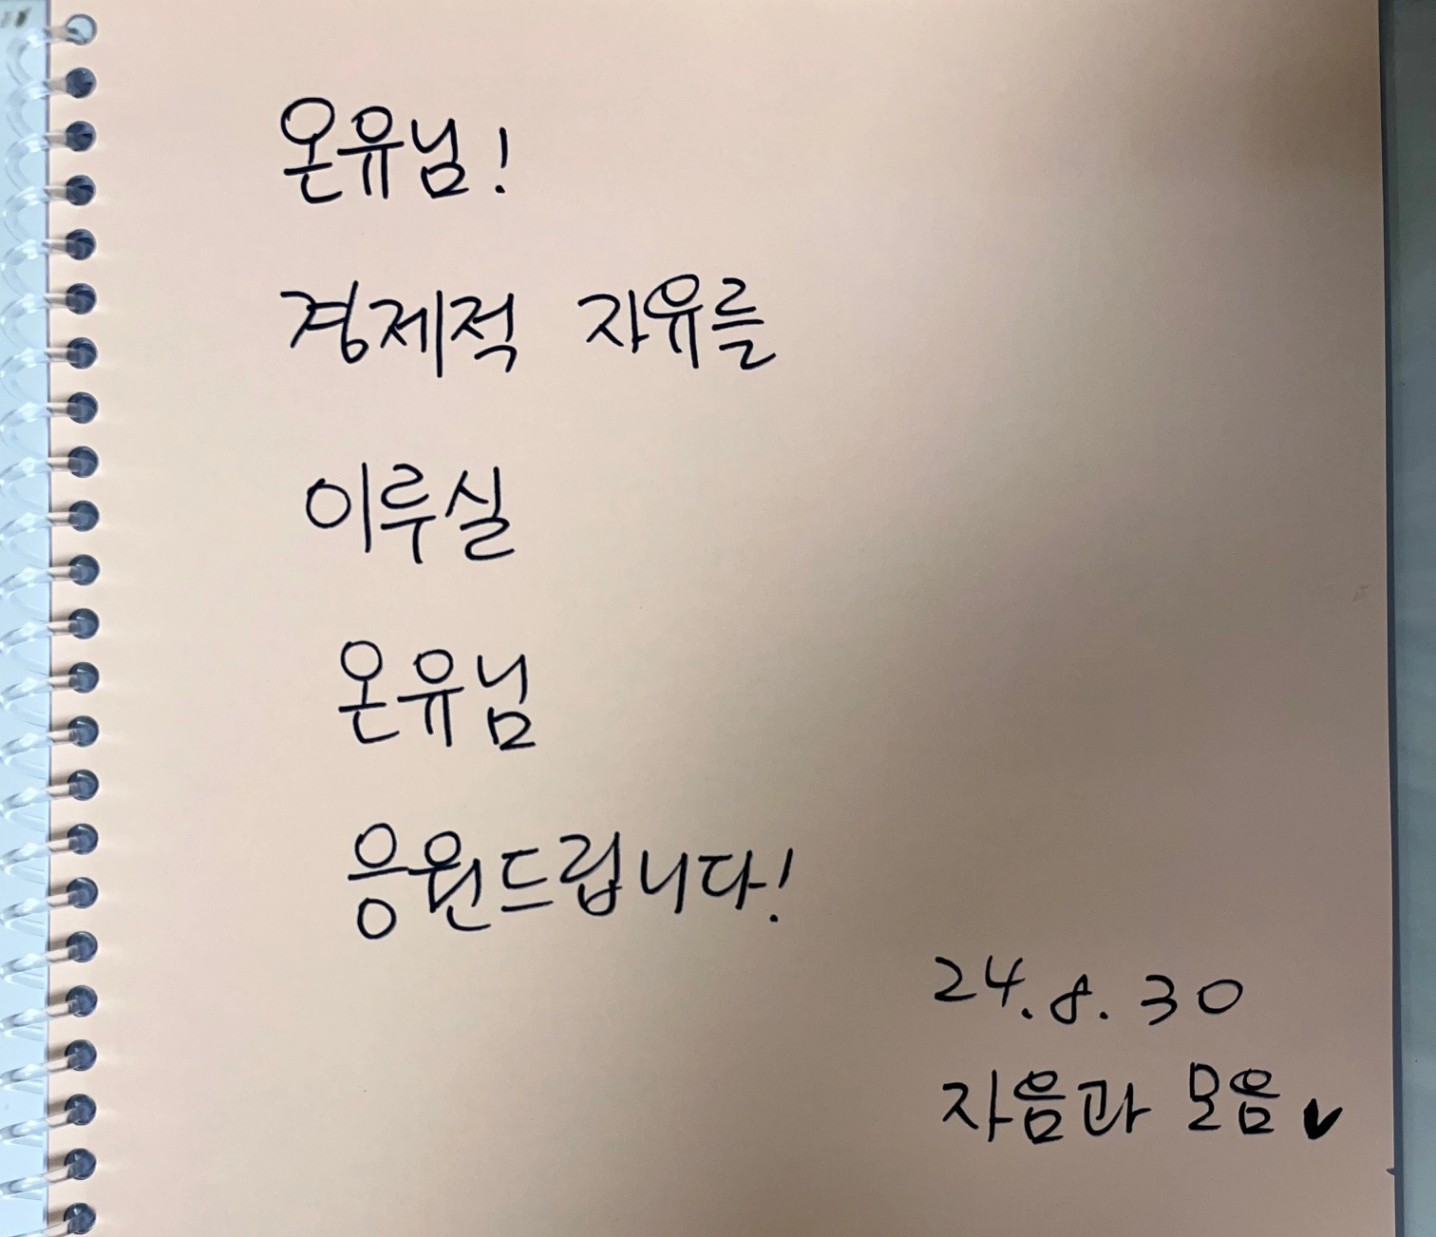 온유님!
경제적 자유를
이루실
온유님
응원드립니다!
24. 8. 30
자음과 모음